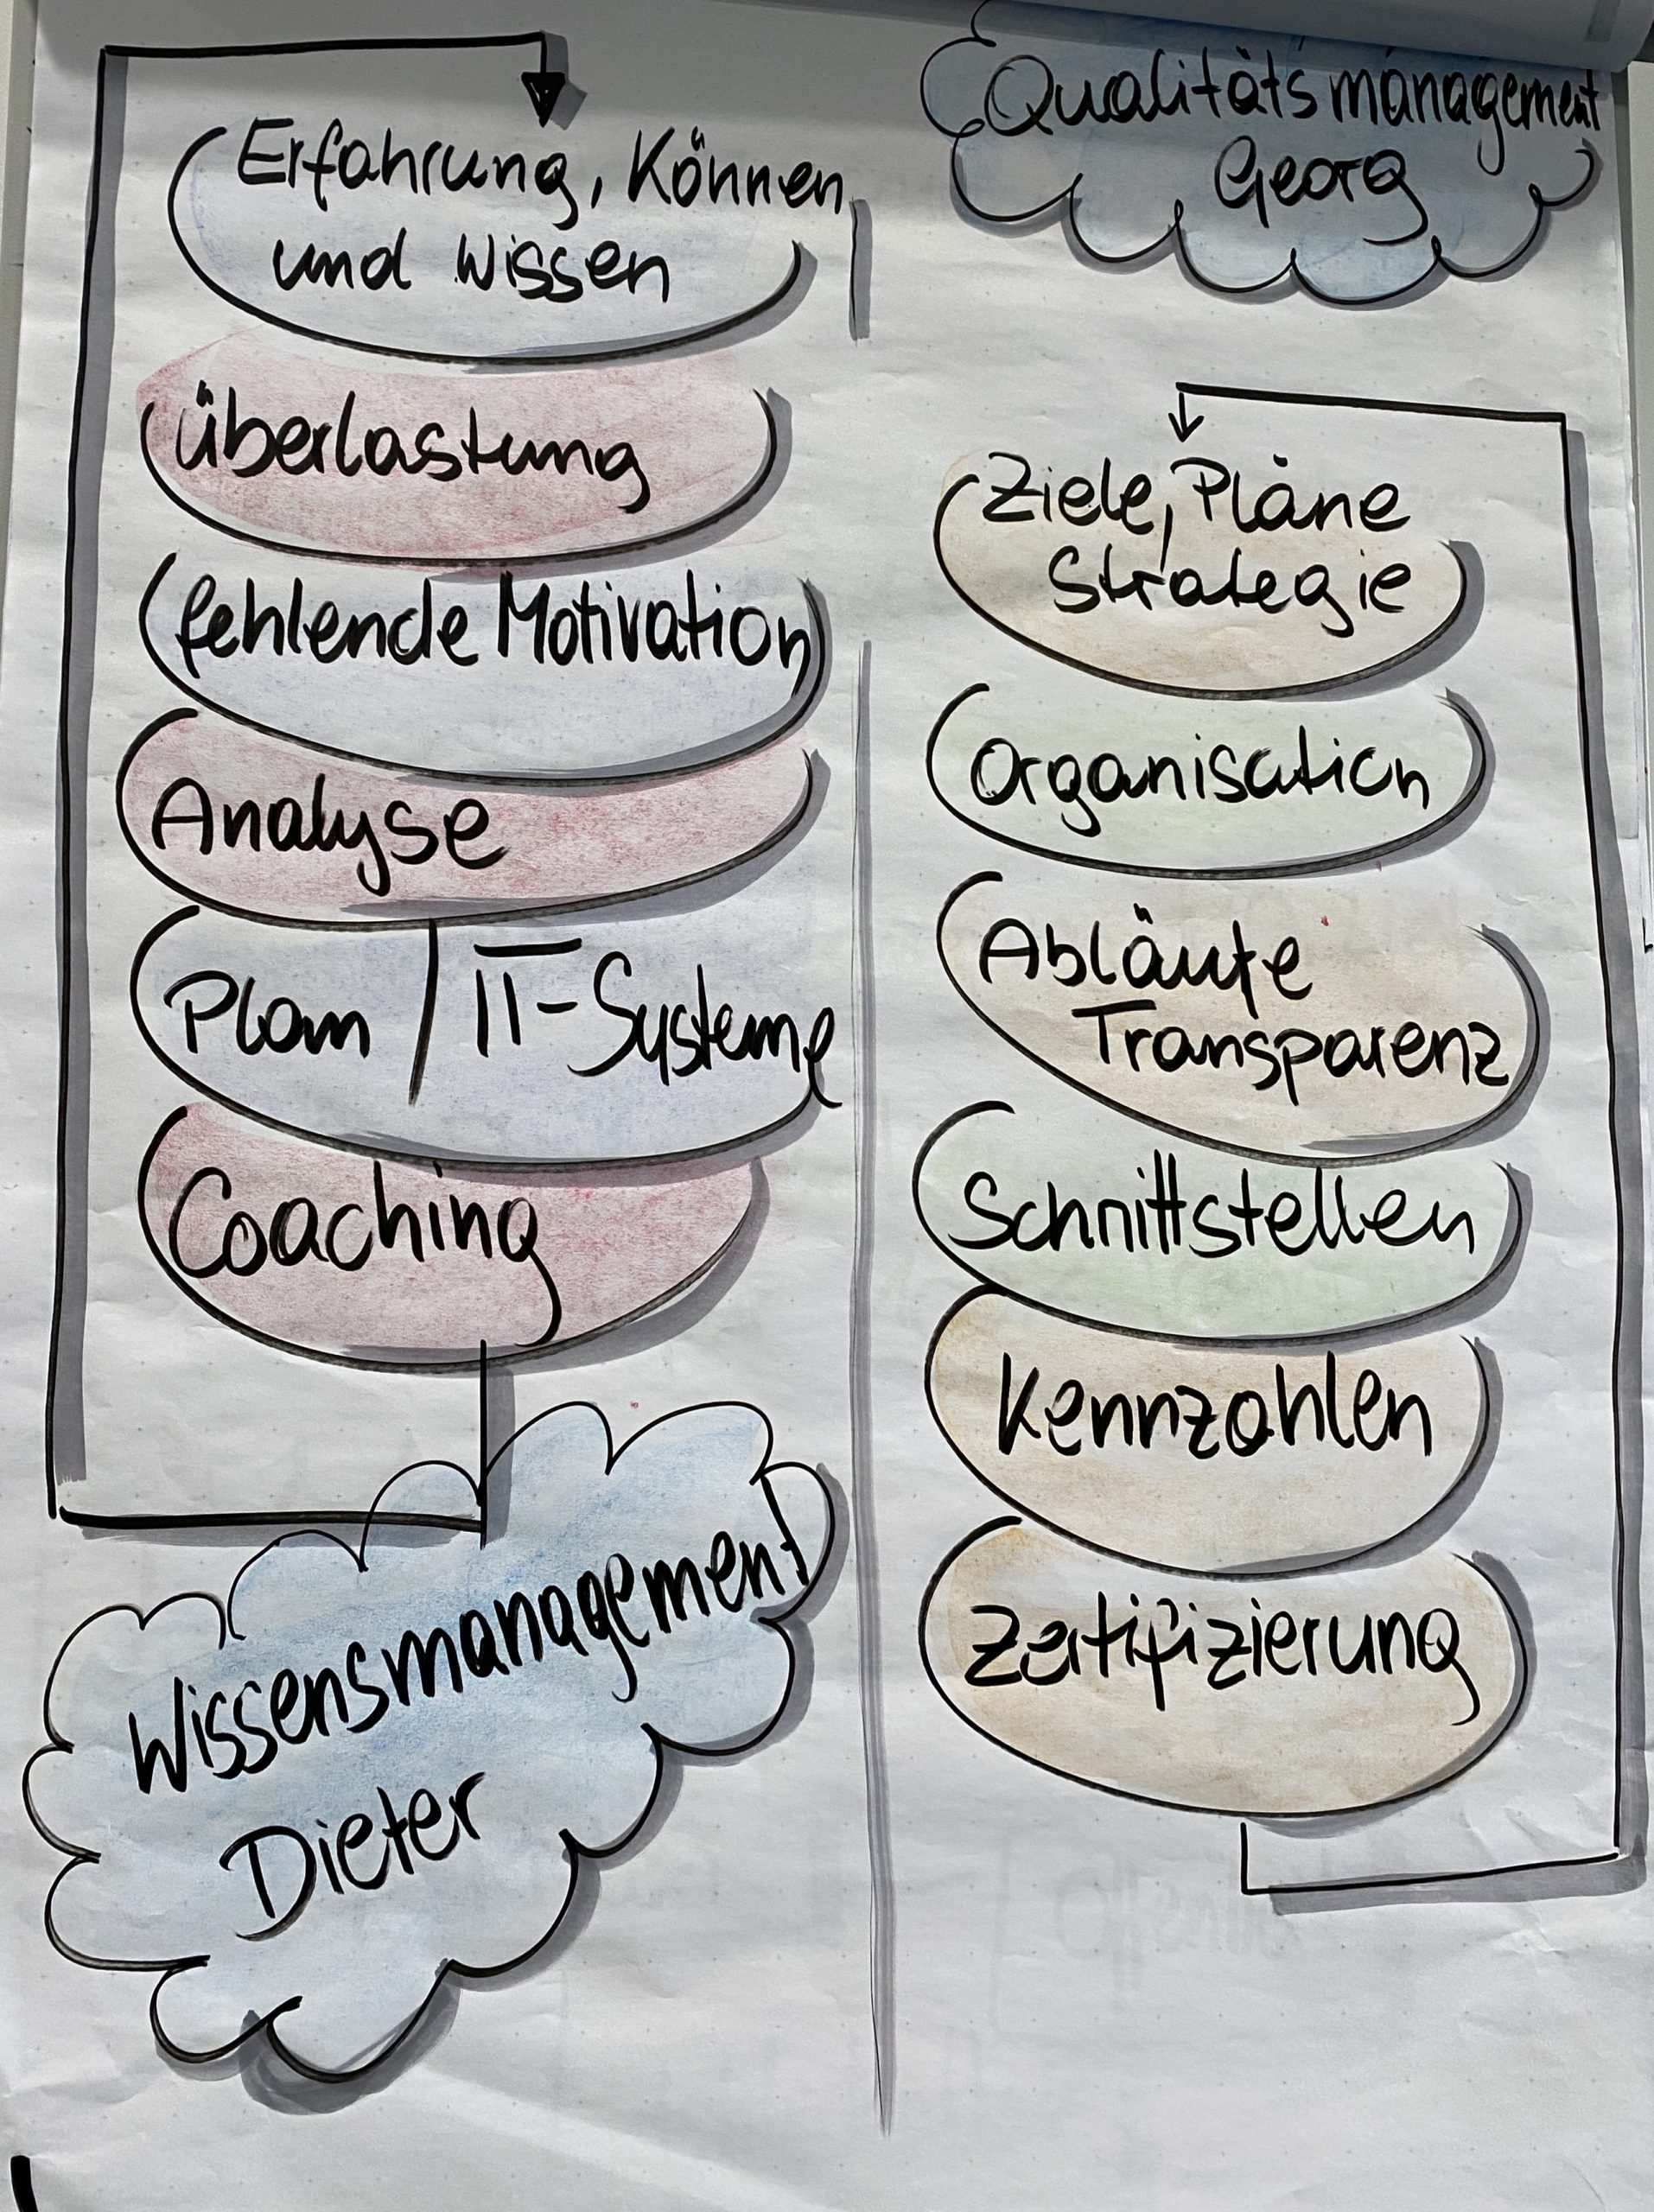 Erfahrung, Können
und Wissen
Überlastung
fehlende Motivation
Analyse
Plan / IT-Systeme
Coaching
Wissensmanagement
Dieter
Qualitätsmanagement
Georg
Ziele, Pläne
Strategie
Organisation
Abläufe
Transparenz
Schnittstellen
Kennzahlen
Zertifizierung